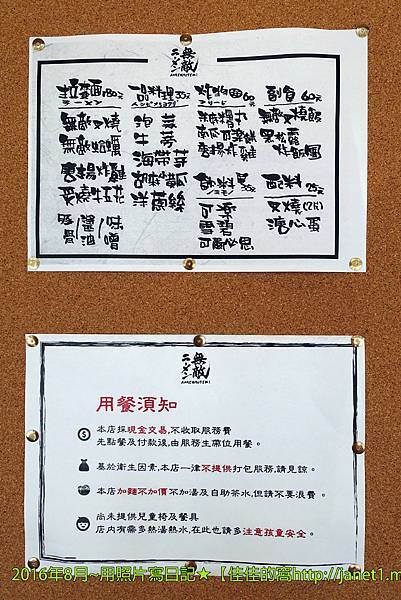 無敵
ニーメン
拉麵180元
ラーメン
無敵叉燒
無敵蛤蠣
唐揚炸雞
炙燒牛五花
豚骨/醬油/味噌
品料理35元
泡菜
牛蒡
海帶芽
胡麻小黃瓜
洋蔥絲
炸物 60元
フリード
南瓜可樂餅
唐揚炸雞
飲料 35元
可樂
雪碧
可爾必思
副食 60元
無敵叉燒飯
黑松露
炸飯糰
配料 25元
叉燒(2片)
溏心蛋
無敵
ニーメン
用餐須知
本店採現金交易,不收取服務費
先點餐及付款後,由服務生帶位用餐。
基於衛生因素,本店一律不提供打包服務,請見諒。
本店加麵不加價不加湯及自助茶水,但請不要浪費。
尚未提供兒童椅及餐具
店內有需多熱湯熱水,在此也請多注意孩童安全。
2016年8月~用照片寫日記★【佳佳的窩http://janet1.m